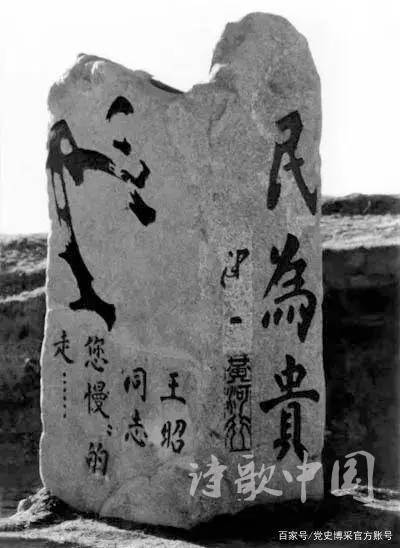 民為貴
黃河
王昭
同志
您慢〻的
走……
诗歌中国
百家号/党史博采官方账号